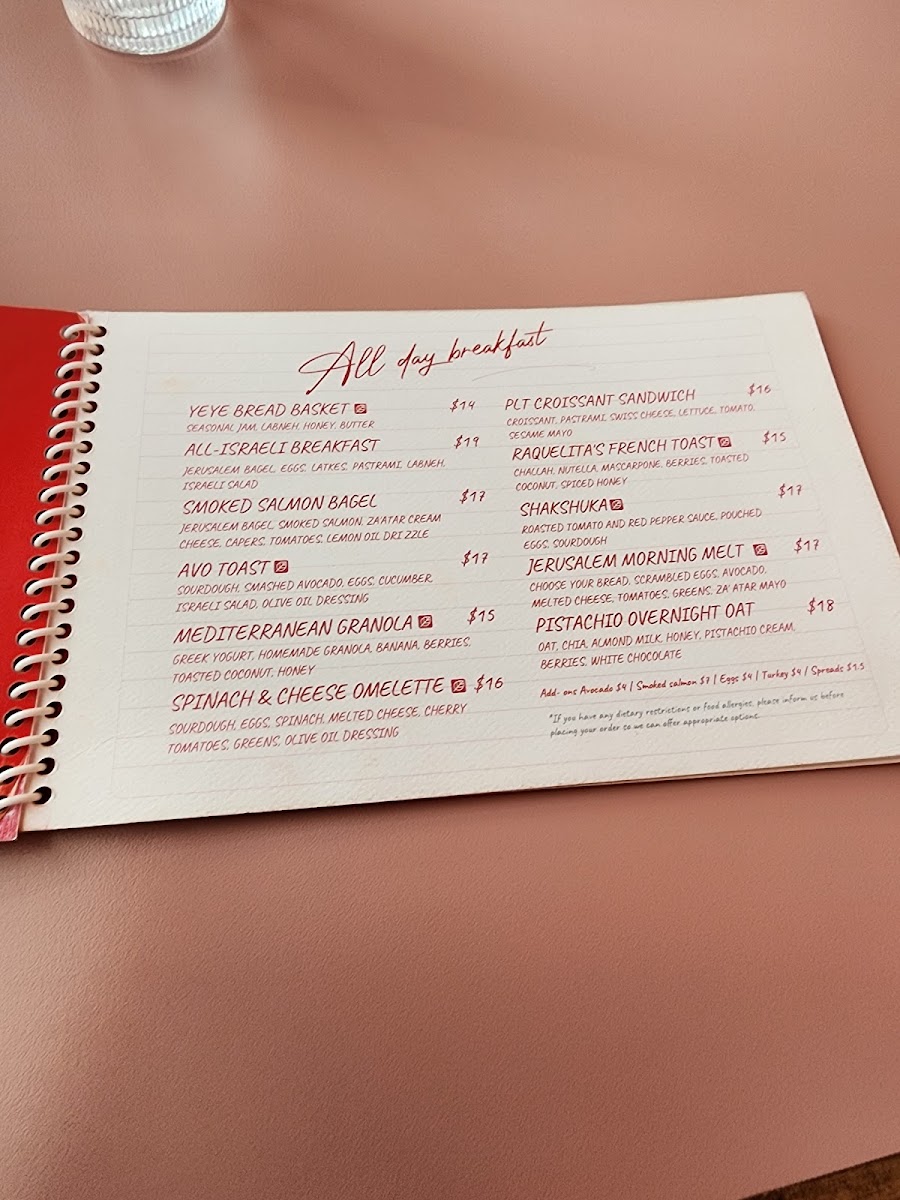 All day breakfast
YEYE BREAD BASKET $14
SEASONAL JAM, LABNEH, HONEY, BUTTER
ALL-ISRAELI BREAKFAST $19
JERUSALEM BAGEL, EGGS, LATKES, PASTRAMI, LABNEH,
ISRAELI SALAD
SMOKED SALMON BAGEL $17
JERUSALEM BAGEL, SMOKED SALMON, ZA'ATAR CREAM
CHEESE, CAPERS, TOMATOES, LEMON OIL DRI ZZLE
AVO TOAST $17
SOURDOUGH, SMASHED AVOCADO, EGGS, CUCUMBER,
ISRAELI SALAD, OLIVE OIL DRESSING
MEDITERRANEAN GRANOLA $15
GREEK YOGURT, HOMEMADE GRANOLA, BANANA, BERRIES,
TOASTED COCONUT, HONEY
SPINACH & CHEESE OMELETTE $16
SOURDOUGH, EGGS, SPINACH, MELTED CHEESE, CHERRY
TOMATOES, GREENS, OLIVE OIL DRESSING
PLT CROISSANT SANDWICH $16
CROISSANT, PASTRAMI, SWISS CHEESE, LETTUCE, TOMATO,
SESAME MAYO
RAQUELITA'S FRENCH TOAST $15
CHALLAH, NUTELLA, MASCARPONE, BERRIES, TOASTED
COCONUT, SPICED HONEY
SHAKSHUKA $17
ROASTED TOMATO AND RED PEPPER SAUCE, POUCHED
EGGS, SOURDOUGH
JERUSALEM MORNING MELT $17
CHOOSE YOUR BREAD, SCRAMBLED EGGS, AVOCADO,
MELTED CHEESE, TOMATOES, GREENS, ZA' ATAR MAYO
PISTACHIO OVERNIGHT OAT $18
OAT, CHIA, ALMOND MILK, HONEY, PISTACHIO CREAM,
BERRIES, WHITE CHOCOLATE
Add- ons Avocado $4 | Smoked salmon $7 | Eggs $4 | Turkey $4 | Spreads $1.5
*If you have any dietary restrictions or food allergies, please inform us before
placing your order so we can offer appropriate options.